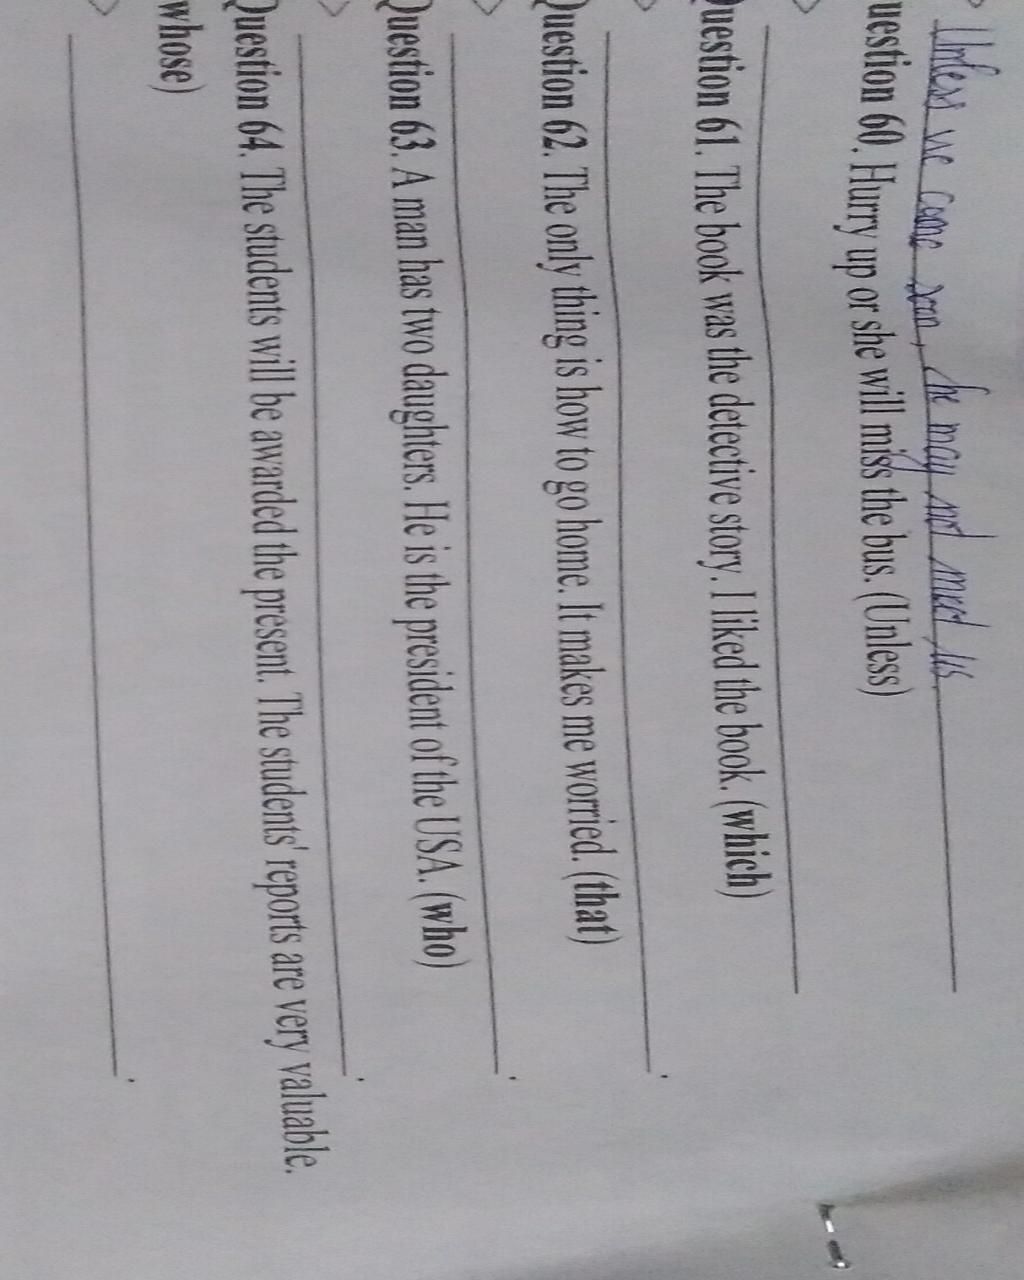 Unless we come soon, he may not meet us.
uestion 60. Hurry up or she will miss the bus. (Unless)
Question 61. The book was the detective story. I liked the book. (which)
Question 62. The only thing is how to go home. It makes me worried. (that)
Question 63. A man has two daughters. He is the president of the USA. (who)
Question 64. The students will be awarded the present. The students' reports are very valuable.
whose)